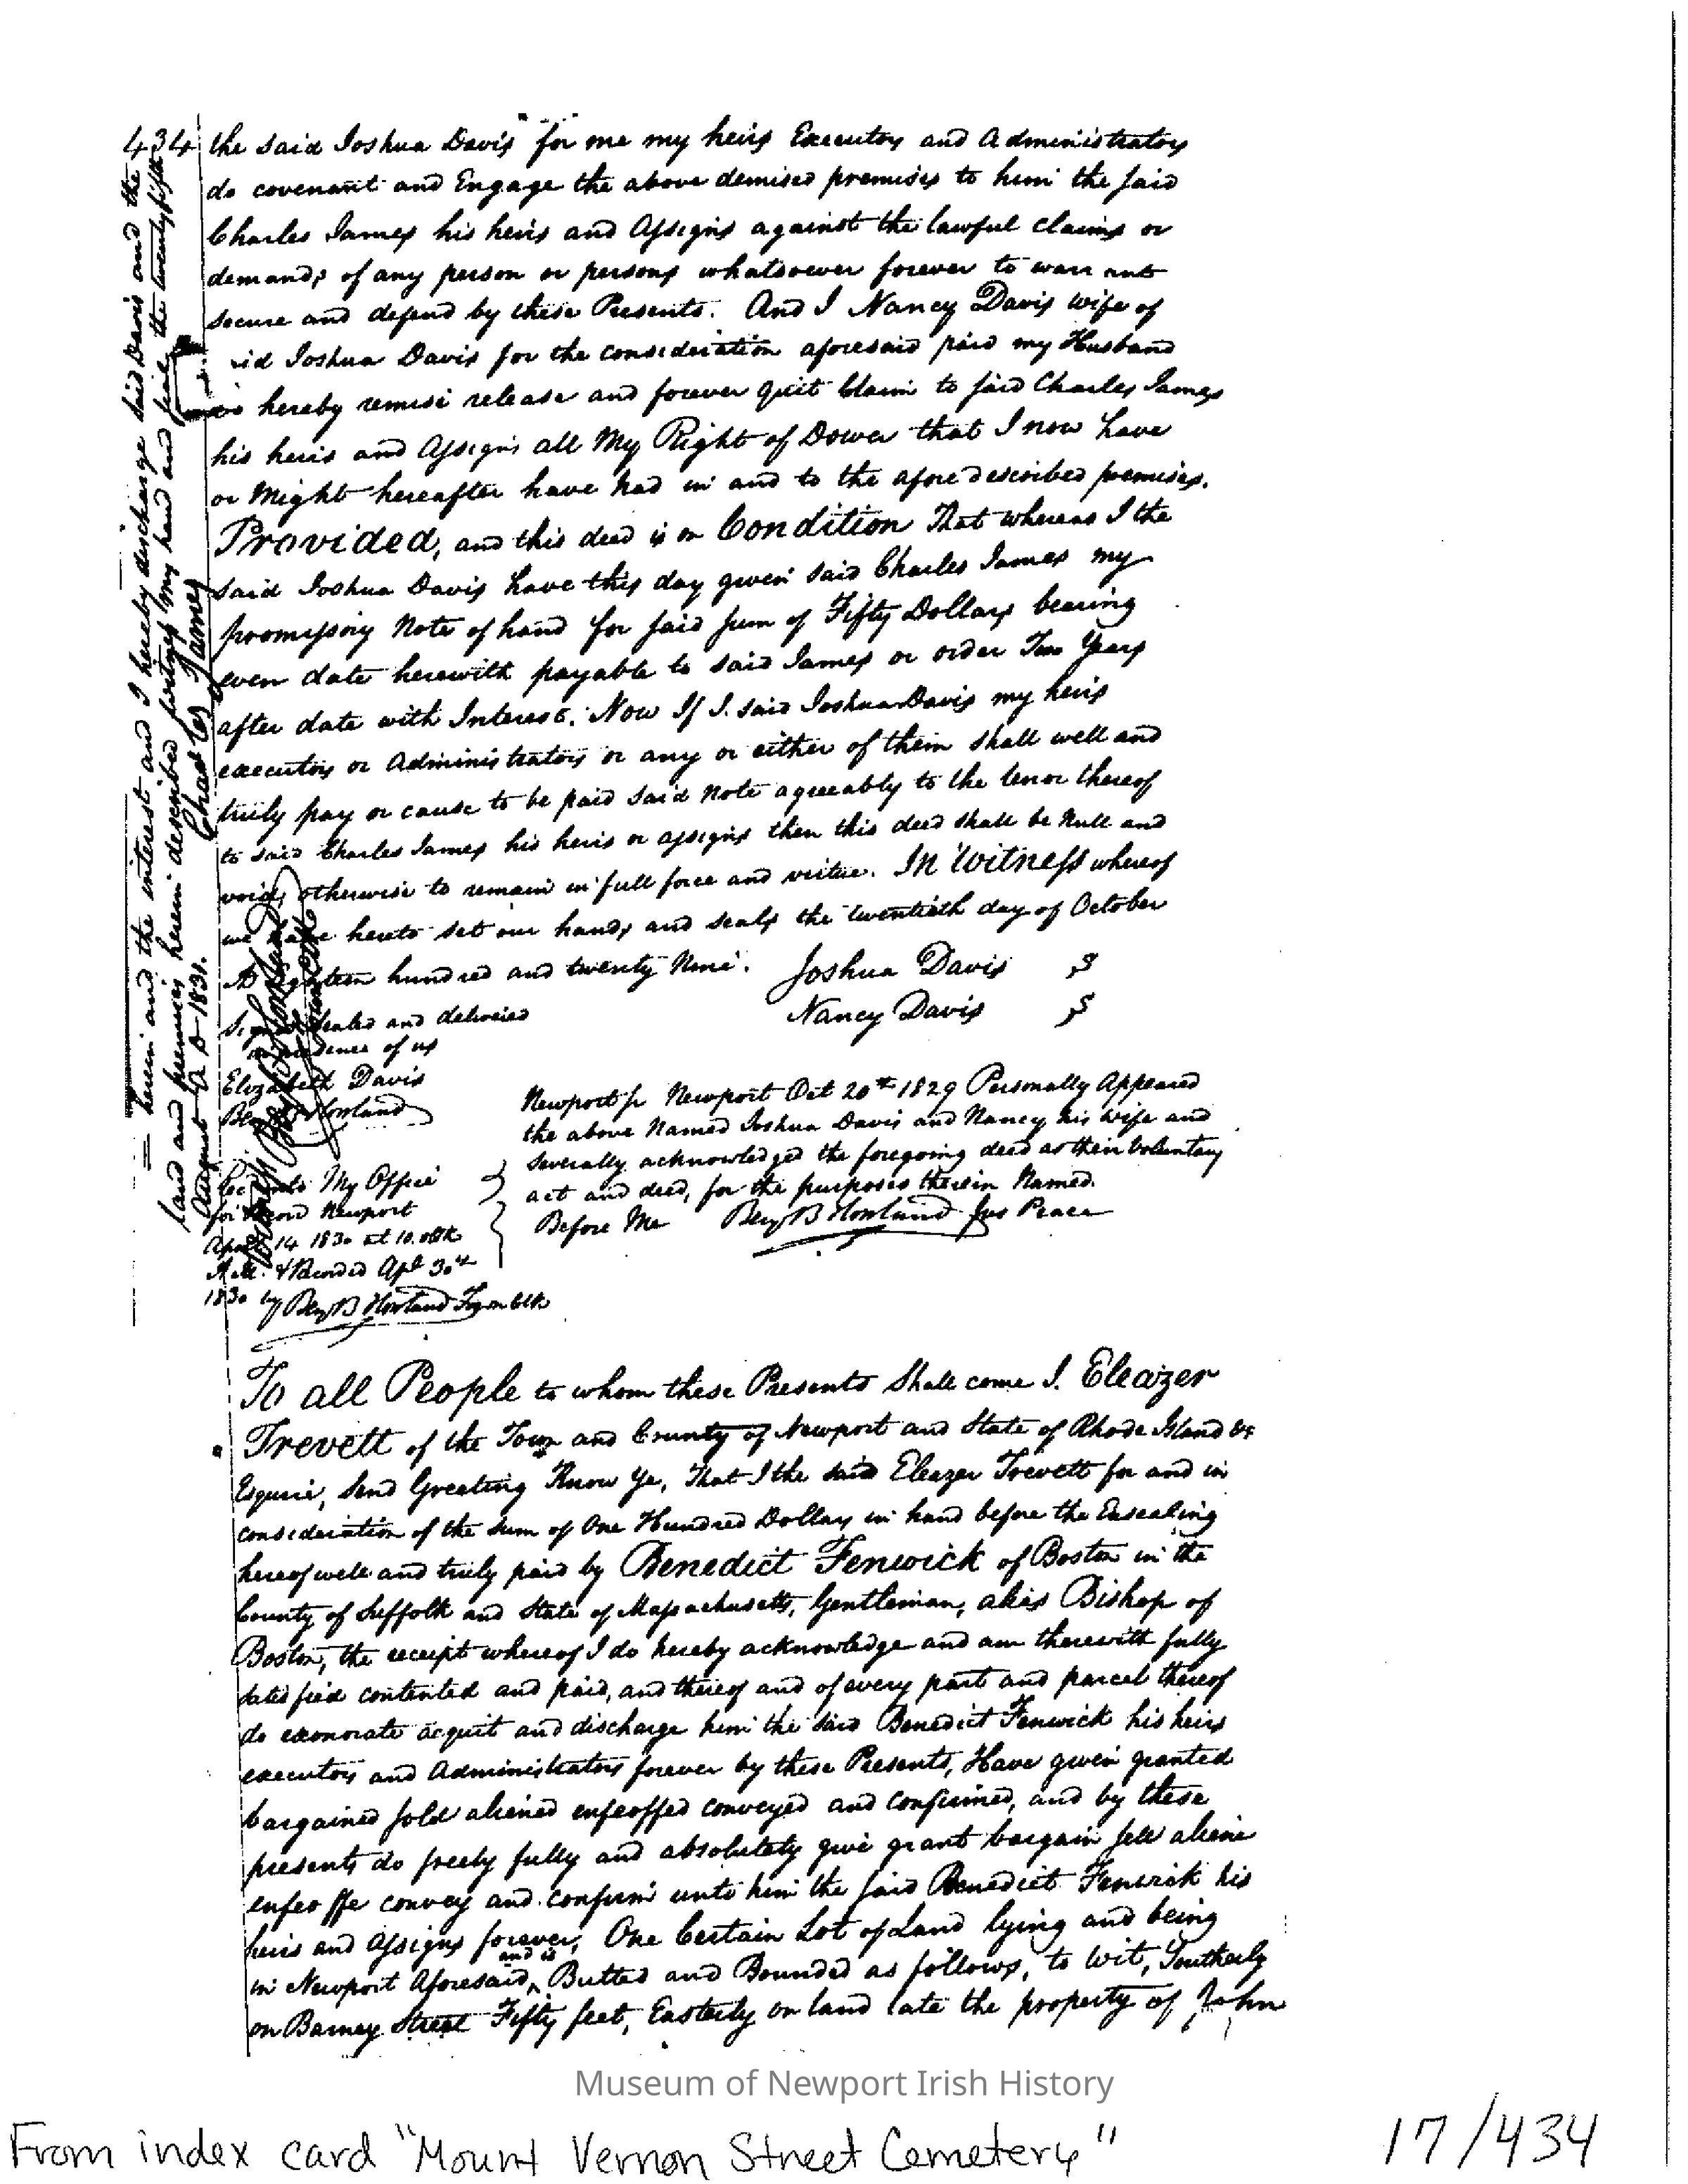 434 the said Joshua Davis for me my heirs Executors and Administrators
do covenant and Engage the above demised premises to him the said
Charles James his heirs and Assigns against the lawful claims or
demands of any person or persons whatsoever forever to warrant
secure and defend by these Presents. And I Nancy Davis wife of
id Joshua Davis for the consideration aforesaid paid my Husband
do hereby remise release and forever quit Claim to said Charles James
his heirs and Assigns all My Right of Dower that I now have
or Might hereafter have had in and to the afore described premises.
Provided, and this deed is on Condition That whereas I the
said Joshua Davis have this day given said Charles James my
promissory Note of hand for said sum of Fifty Dollars bearing
even date herewith payable to said James or order Two Years
after date with Interest. Now If I said Joshua Davis my heirs
executors or Administrators or any or either of them shall well and
truly pay or cause to be paid said Note agreeably to the tenor thereof
to said Charles James his heirs or assigns then this deed shall be Null and
void, otherwise to remain in full force and virtue. In Witness whereof
we have hereto set our hands and seals the twentieth day of October
AD Eighteen hundred and twenty Nine. Joshua Davis S
Nancy Davis S
Signed Sealed and delivered
in presence of us
Elizabeth Davis
Benj B Howland
Newport ss Newport Oct 20th 1829 Personally Appeared
the above Named Joshua Davis and Nancy his wife and
severally acknowledged the foregoing deed as their Voluntary
act and deed, for the purposes therein Named.
Before Me Benj B Howland Jus Peace
My Office
for Record Newport
April 14 1830 at 10. oClk
A.M. & Recorded Apl 30th
1830 by Benj B Howland Town Clk
herein and the interest and I hereby discharge said Davis and the
land and premises herein described. my hand and seal the twentyfifth
August A D 1831. Charles James
To all People to whom these Presents Shall come I. Eleazer
Trevett of the Town and County of Newport and State of Rhode Island &c
Esquire, Send Greeting Know Ye, That I the said Eleazer Trevett for and in
consideration of the sum of One Hundred Dollars in hand before the Ensealing
hereof well and truly paid by Benedict Fenwick of Boston in the
County of Suffolk and State of Massachusetts, Gentleman, alias Bishop of
Boston, the receipt whereof I do hereby acknowledge and am therewith fully
satisfied contented and paid, and thereof and of every part and parcel thereof
do exonorate acquit and discharge him the said Benedict Fenwick his heirs
executors and Administrators forever by these Presents, Have given granted
bargained sold aliened enfeoffed conveyed and confirmed, and by these
presents do freely fully and absolutely give grant bargain sell aliene
enfeoffe convey and confirm unto him the said Benedict Fenwick his
heirs and Assigns forever, One Certain Lot of Land lying and being
in Newport Aforesaid, and is Butted and Bounded as follows, to Wit, Southerly
on Barney Street Fifty feet, Easterly on land late the property of John
Museum of Newport Irish History
From index card "Mount Vernon Street Cemetery"
17/434